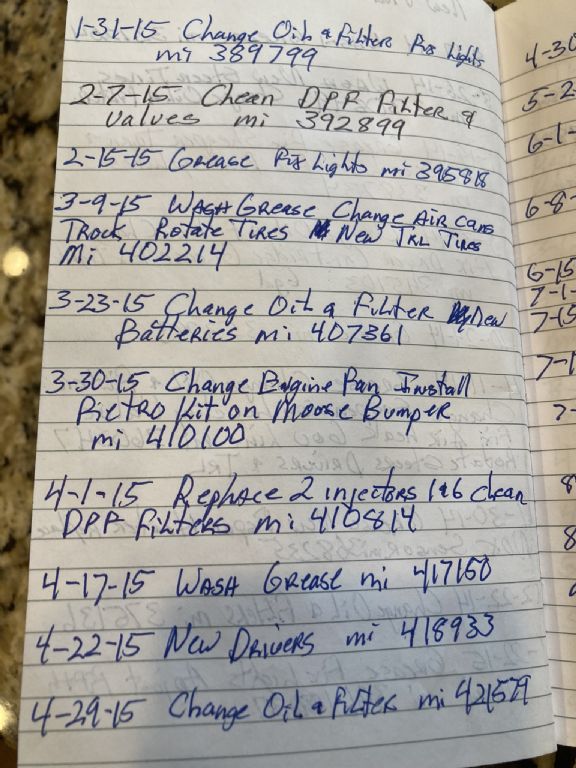 1-31-15 Change Oil & Filters Fix Lights
mi 389799
2-7-15 Clean DPF Filter &
Values mi 392899
2-15-15 Grease Fix Lights mi 395818
3-9-15 WASH GREASE Change AIR CANS
TRUCK Rotate Tires New TRL Tires
Mi 402214
3-23-15 Change Oil & Filter New
Batteries mi 407361
3-30-15 Change Engine Pan Install
RetRO Kit on Moose Bumper
mi 410100
4-1-15 Replace 2 injectors 1&6 Clean
DPF Filters mi 410814
4-17-15 WASH GREASE mi 417150
4-22-15 New Drivers mi 418933
4-29-15 Change Oil & Filter mi 421579
4-30
5-2
6-1-
6-8-
6-15
7-1-
7-15
7-1
7-
8
8